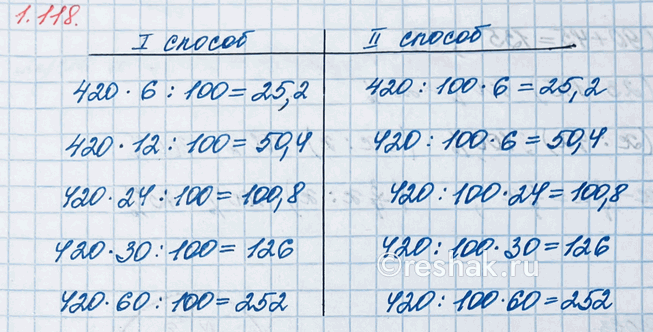 1.118.
I способ II способ
420 · 6 : 100 = 25,2 420 : 100 · 6 = 25,2
420 · 12 : 100 = 50,4 420 : 100 · 6 = 50,4
420 · 24 : 100 = 100,8 420 : 100 · 24 = 100,8
420 · 30 : 100 = 126 420 : 100 · 30 = 126
©reshak.ru
420 · 60 : 100 = 252 420 : 100 · 60 = 252